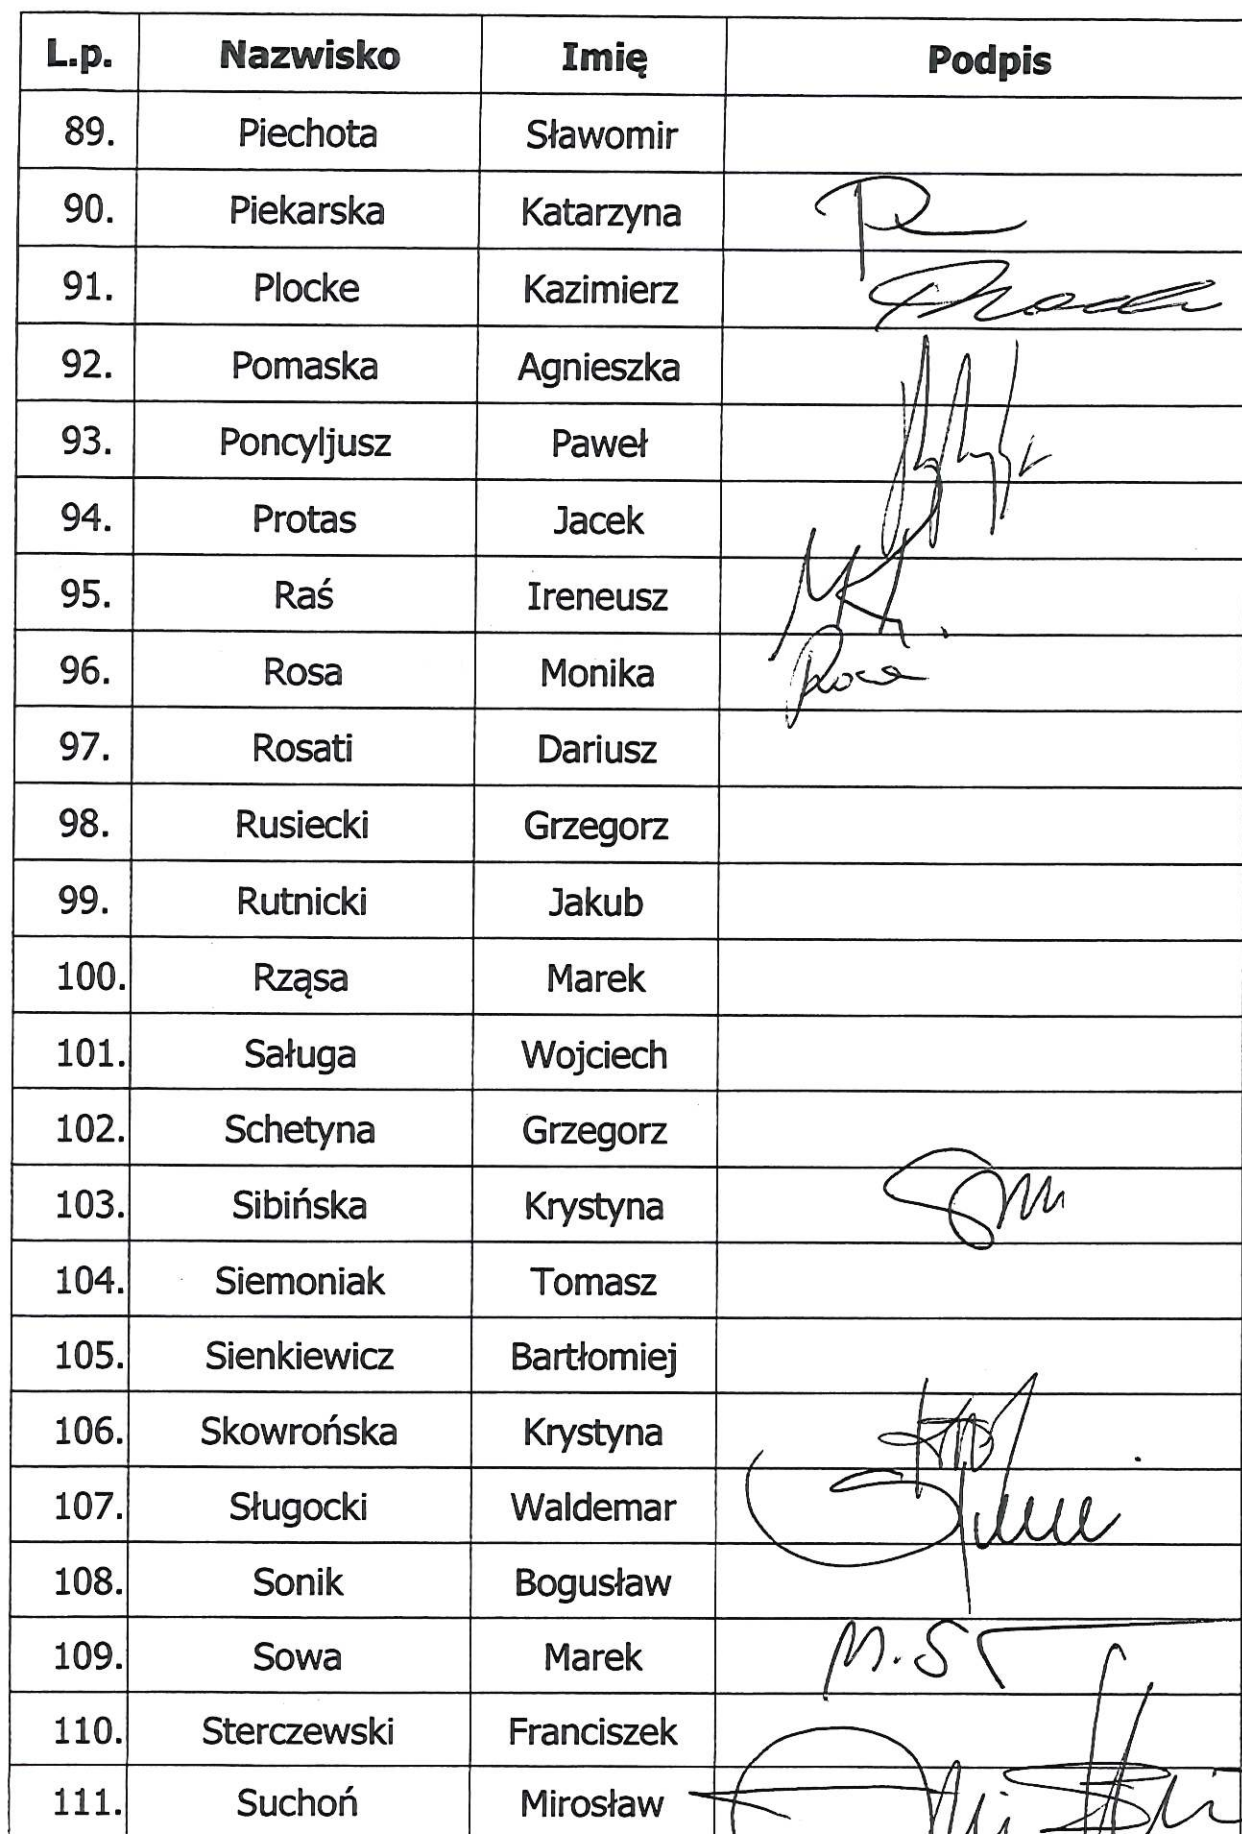 L.p. Nazwisko Imię Podpis
89. Piechota Sławomir
90. Piekarska Katarzyna
91. Plocke Kazimierz
92. Pomaska Agnieszka
93. Poncyljusz Paweł
94. Protas Jacek
95. Raś Ireneusz
96. Rosa Monika Rosa
97. Rosati Dariusz
98. Rusiecki Grzegorz
99. Rutnicki Jakub
100. Rząsa Marek
101. Saługa Wojciech
102. Schetyna Grzegorz
103. Sibińska Krystyna
104. Siemoniak Tomasz
105. Sienkiewicz Bartłomiej
106. Skowrońska Krystyna
107. Sługocki Waldemar
108. Sonik Bogusław
109. Sowa Marek M.S
110. Sterczewski Franciszek
111. Suchoń Mirosław